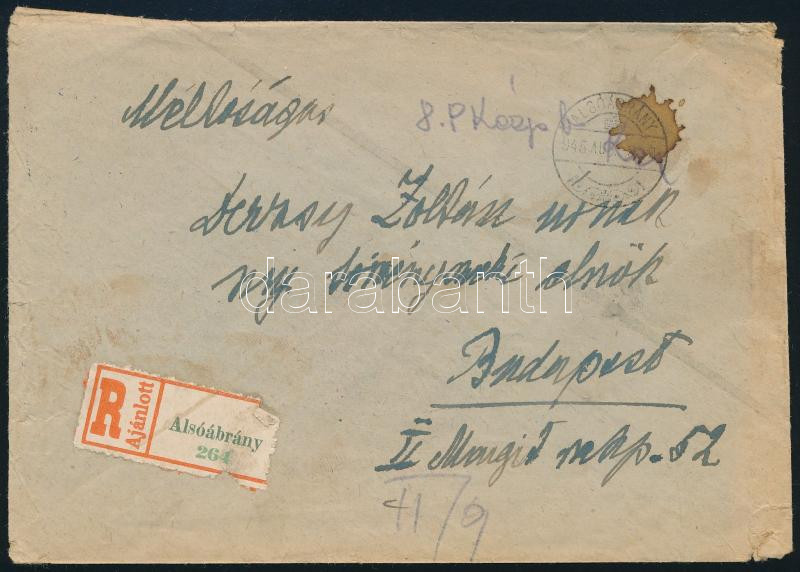 Méltóságos
8. P. Közp
ALSÓÁBRÁNY
Zoltán úrnak
ny. elnök
darabanth
Budapest
II Margit rakp. 52
R
Ajánlott
Alsóábrány
264
II/9